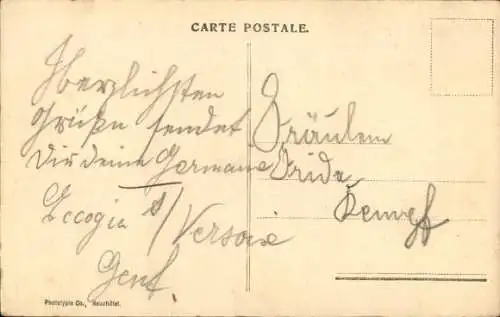 CARTE POSTALE.
Herzlichsten
Grüße sendet
Dir deine Germaine
Ecogia s/Versoix
Genf.
Fräulein
Frida
Phototypie Co., Neuchâtel.